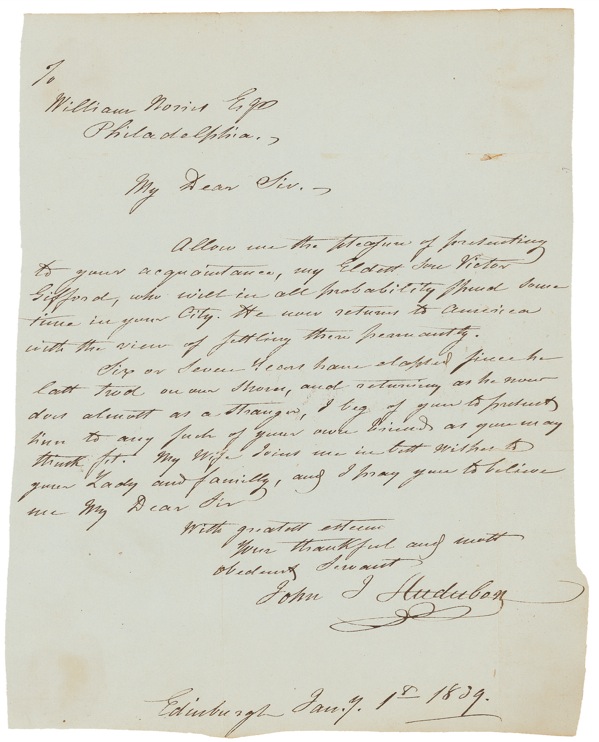 To
William Norris Esqr
Philadelphia.
My Dear Sir.
Allow me the pleasure of presenting
to your acquaintance, my Eldest Son Victor
Gifford, who will in all probability spend some
time in your City. He now returns to America
with the view of settling there permanently.
Six or Seven Years have elapsed since he
last trod on our Shores, and returning as he now
does almost as a stranger, I beg of you to present
him to any such of your own friends as you may
think fit. My Wife Joins me in best Wishes to
your Lady and familly, and I pray you to believe
me My Dear Sir
With greatest esteem
Your thankful and most
obedient Servant
John J Audubon
Edinburgh Jany. 1st 1839.